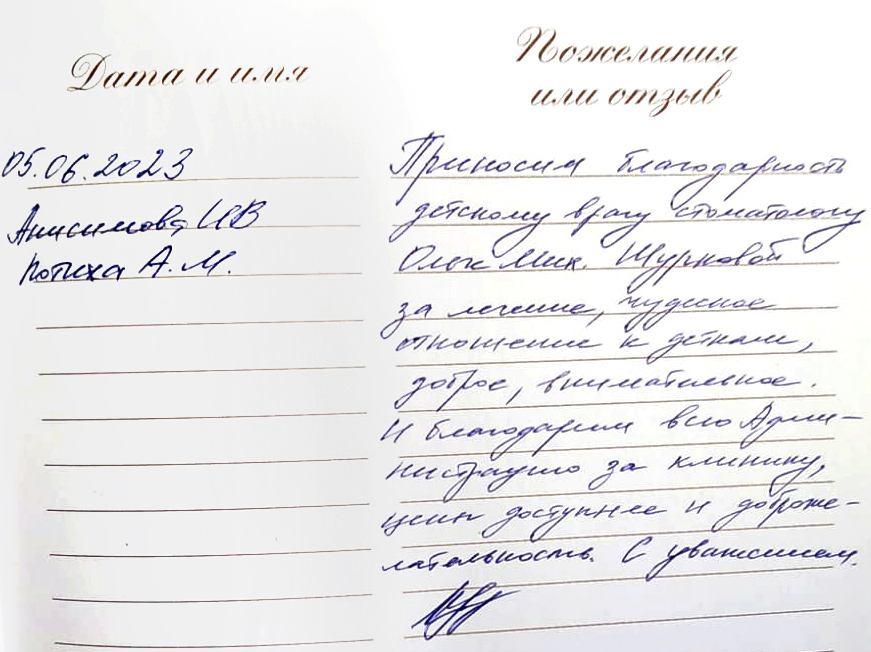 Дата и имя
Пожелания
или отзыв
05.06.2023
Анисимова ИВ
Потиха А. М.
Приносим благодарность
детскому врачу стоматологу
Ольге Мих. Шурковой
за лечение, чудесное
отношение к деткам,
доброе, внимательное.
И благодарим всю Адми-
нистрацию за клинику,
цены доступные и доброже-
лательность. С уважением.